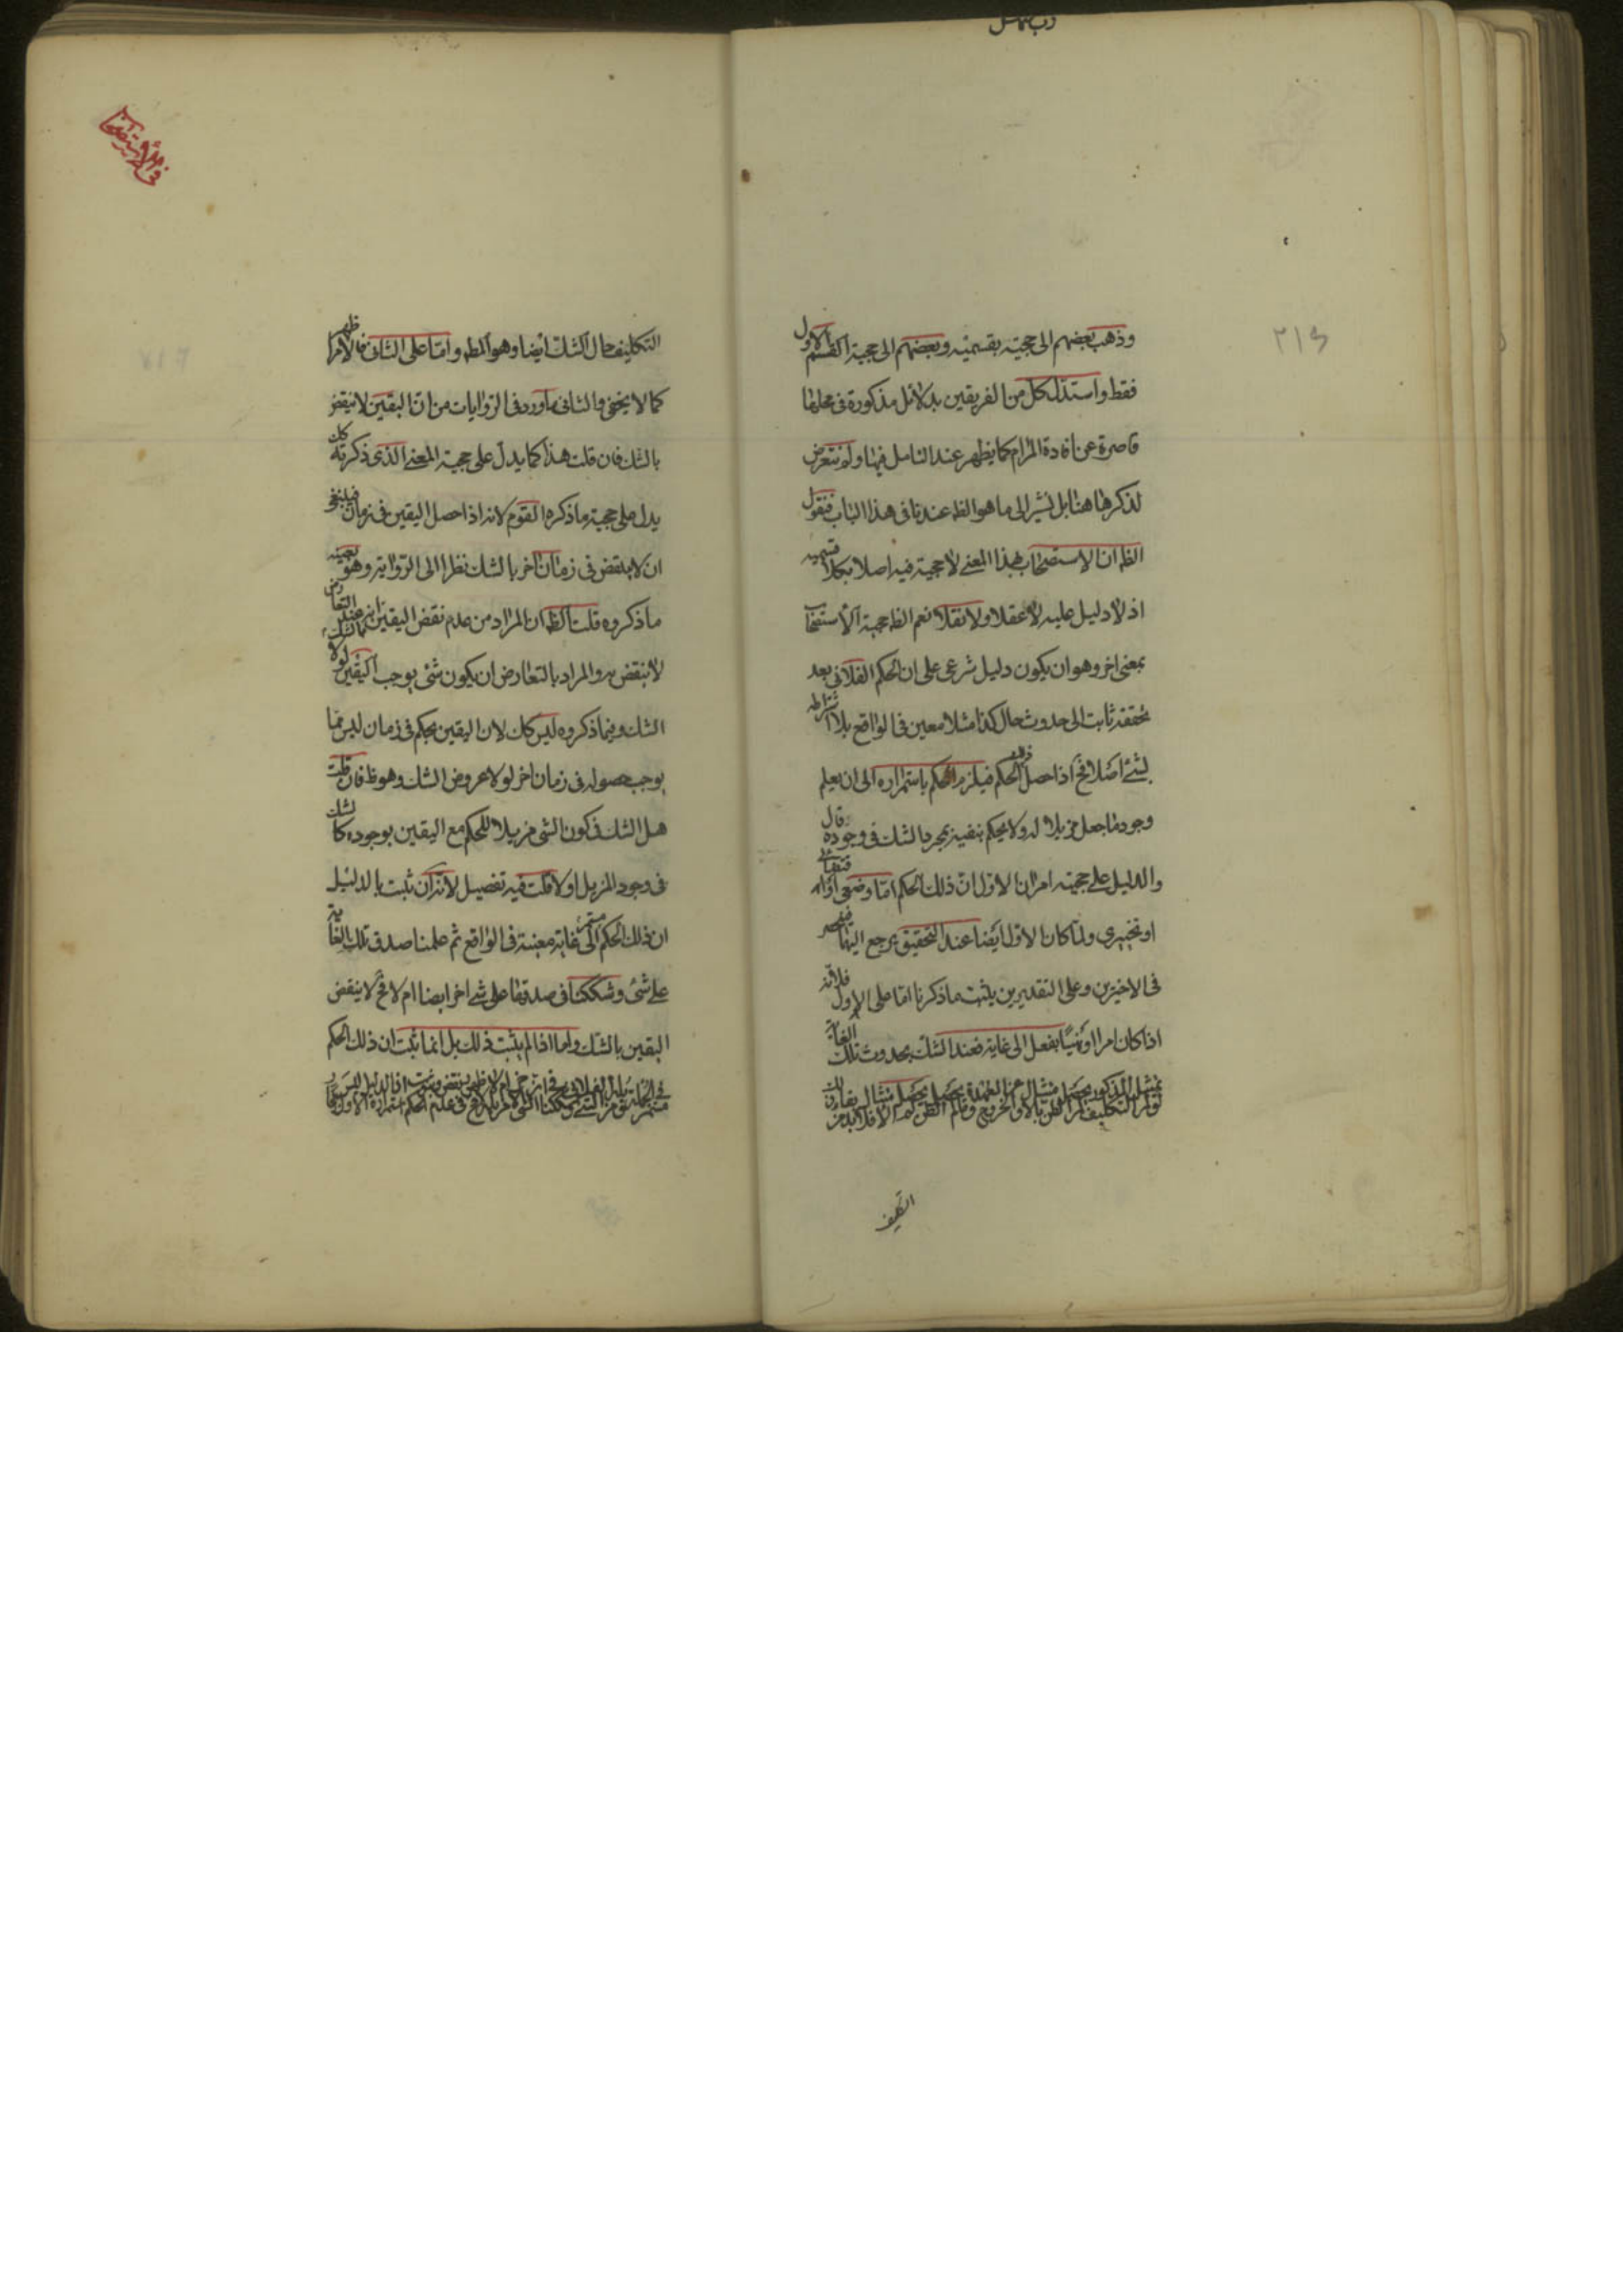 وذهب بعضهم الى حجيته بقسميه وبعضهم الى حجية القسم الاول
فقط واستدل كل من الفريقين بدلائل مذكورة فى محلها
قاصرة عن افادة المرام كما يظهر عند التامل فيها ولم نتعرض
لذكرها هنا بل نشير الى ما هو الظ عندنا فى هذا الباب فنقول
الظ ان الاستصحاب بهذا المعنى لا حجية فيه اصلا بكلا قسميه
اذ لا دليل عليه لا عقلا ولا نقلا نعم الظ حجية الاستصحاب
بمعنى اخر وهو ان يكون دليل شرعى على ان الحكم الفلانى بعد
تحققه ثابت الى حدوث حال كذا مثلا معين فى الواقع بلا اشتراطه
لشئ اصلا فح اذا حصل ذلك الحكم فيلزم الحكم باستمراره الى ان يعلم
وجود ما جعل مزيلا له ولا يحكم بنفيه بمجرد الشك فى وجوده
والدليل على حجيته امران الاول ان ذلك الحكم اما وضعى او
او تخييرى ولما كان الاول ايضا عند التحقيق يرجع اليها فينحصر
فى الاخيرين وعلى التقديرين يثبت ما ذكرنا اما على الاول فلانه
اذا كان امرا او نهيا بفعل الى غاية فعند الشك بحدوث تلك الغاية
التكليف
التكليف حال الشك ايضا وهو المط واما على الثانى فالامر اظهر
كما لا يخفى والثانى ما ورد فى الروايات من ان اليقين لا ينقض
بالشك فان قلت هذا كما يدل على حجية المعنى الذى ذكرته كك
يدل على حجية ما ذكره القوم لانه اذا حصل اليقين فى زمان فينبغى
ان لا ينقض فى زمان اخر بالشك نظرا الى الرواية وهو بعينه
ما ذكروه قلت الظ ان المراد من عدم نقض اليقين بالشك انه عند التعارض
لا ينقض به والمراد بالتعارض ان يكون شئ يوجب اليقين لولا
الشك وفيما ذكروه ليس كك لان اليقين بحكم فى زمان ليس مما
يوجب حصوله فى زمان اخر لولا عروض الشك وهو ظ فان قلت
هل الشك فى كون الشئ مزيلا للحكم مع اليقين بوجوده كالشك
فى وجود المزيل او لا قلت فيه تفصيل لانه ان ثبت بالدليل
ان ذلك الحكم مستمر الى غاية معينة فى الواقع ثم علمنا صدق تلك الغاية
على شئ وشككنا فى صدقها على شئ اخر ايضا ام لا فح لا ينقض
اليقين بالشك واما اذا لم يثبت ذلك بل انما ثبت ان ذلك الحكم